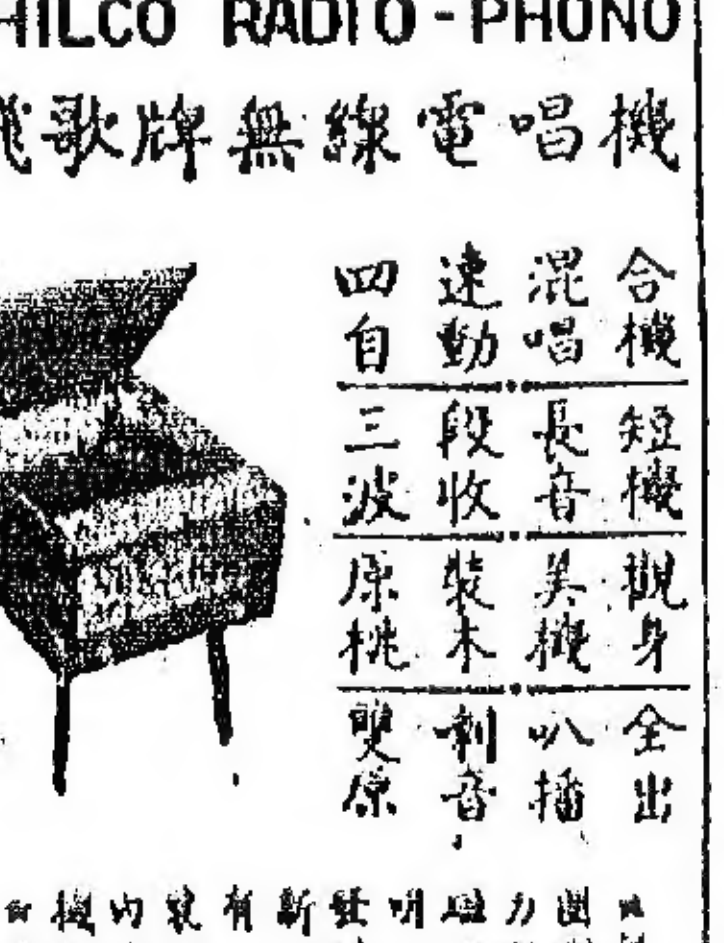 HILCO RADIO-PHONO
飛歌牌無線電唱機
四速混合
自動唱機
三段長短
波收音機
原裝美觀
桃木機身
雙喇叭全
原音播出
機內裝有新發明磁力圈